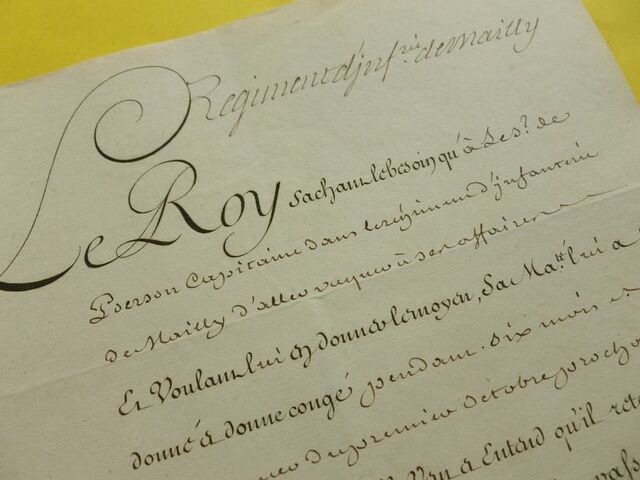 Regiment d'jnf.rie de Mailly
Le Roy sachant le besoin qu'à Le S.r de
Pierson Capitaine dans le régiment d'jnfanterie
de Mailly d'aller vaquer à ses affaires
Et Voulant lui en donner le moyen, Sa Ma.té lui a
donné et donne congé pendant six mois et
du premier d'octobre procha
Entend qu'il